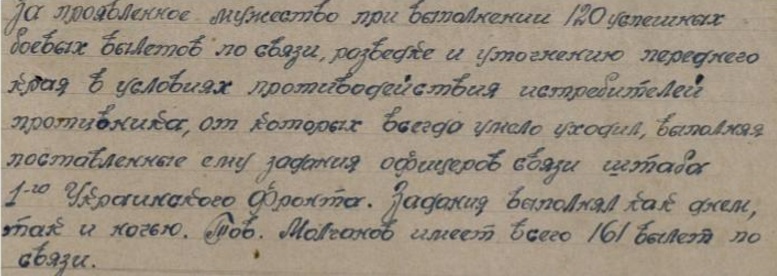 За проявленное мужество при выполнении 120 успешных
боевых вылетов по связи, разведке и уточнению переднего
края в условиях противодействия истребителей
противника, от которых всегда умело уходил, выполняя
поставленные ему задания офицеров связи штаба
1-го Украинского Фронта. Задания выполнял как днем,
так и ночью. Тов. Молчанов имеет всего 161 вылет по
связи.